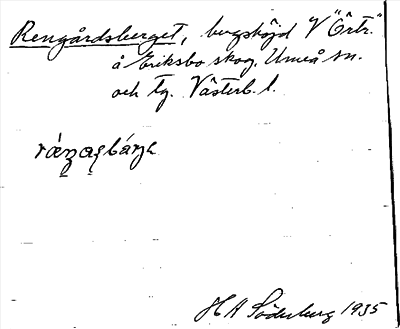 Rengårdsberget, bergshöjd V "Örtr."
å Eriksbo skog. Umeå sn.
och tg. Västerb. l.
H A Söderberg 1935